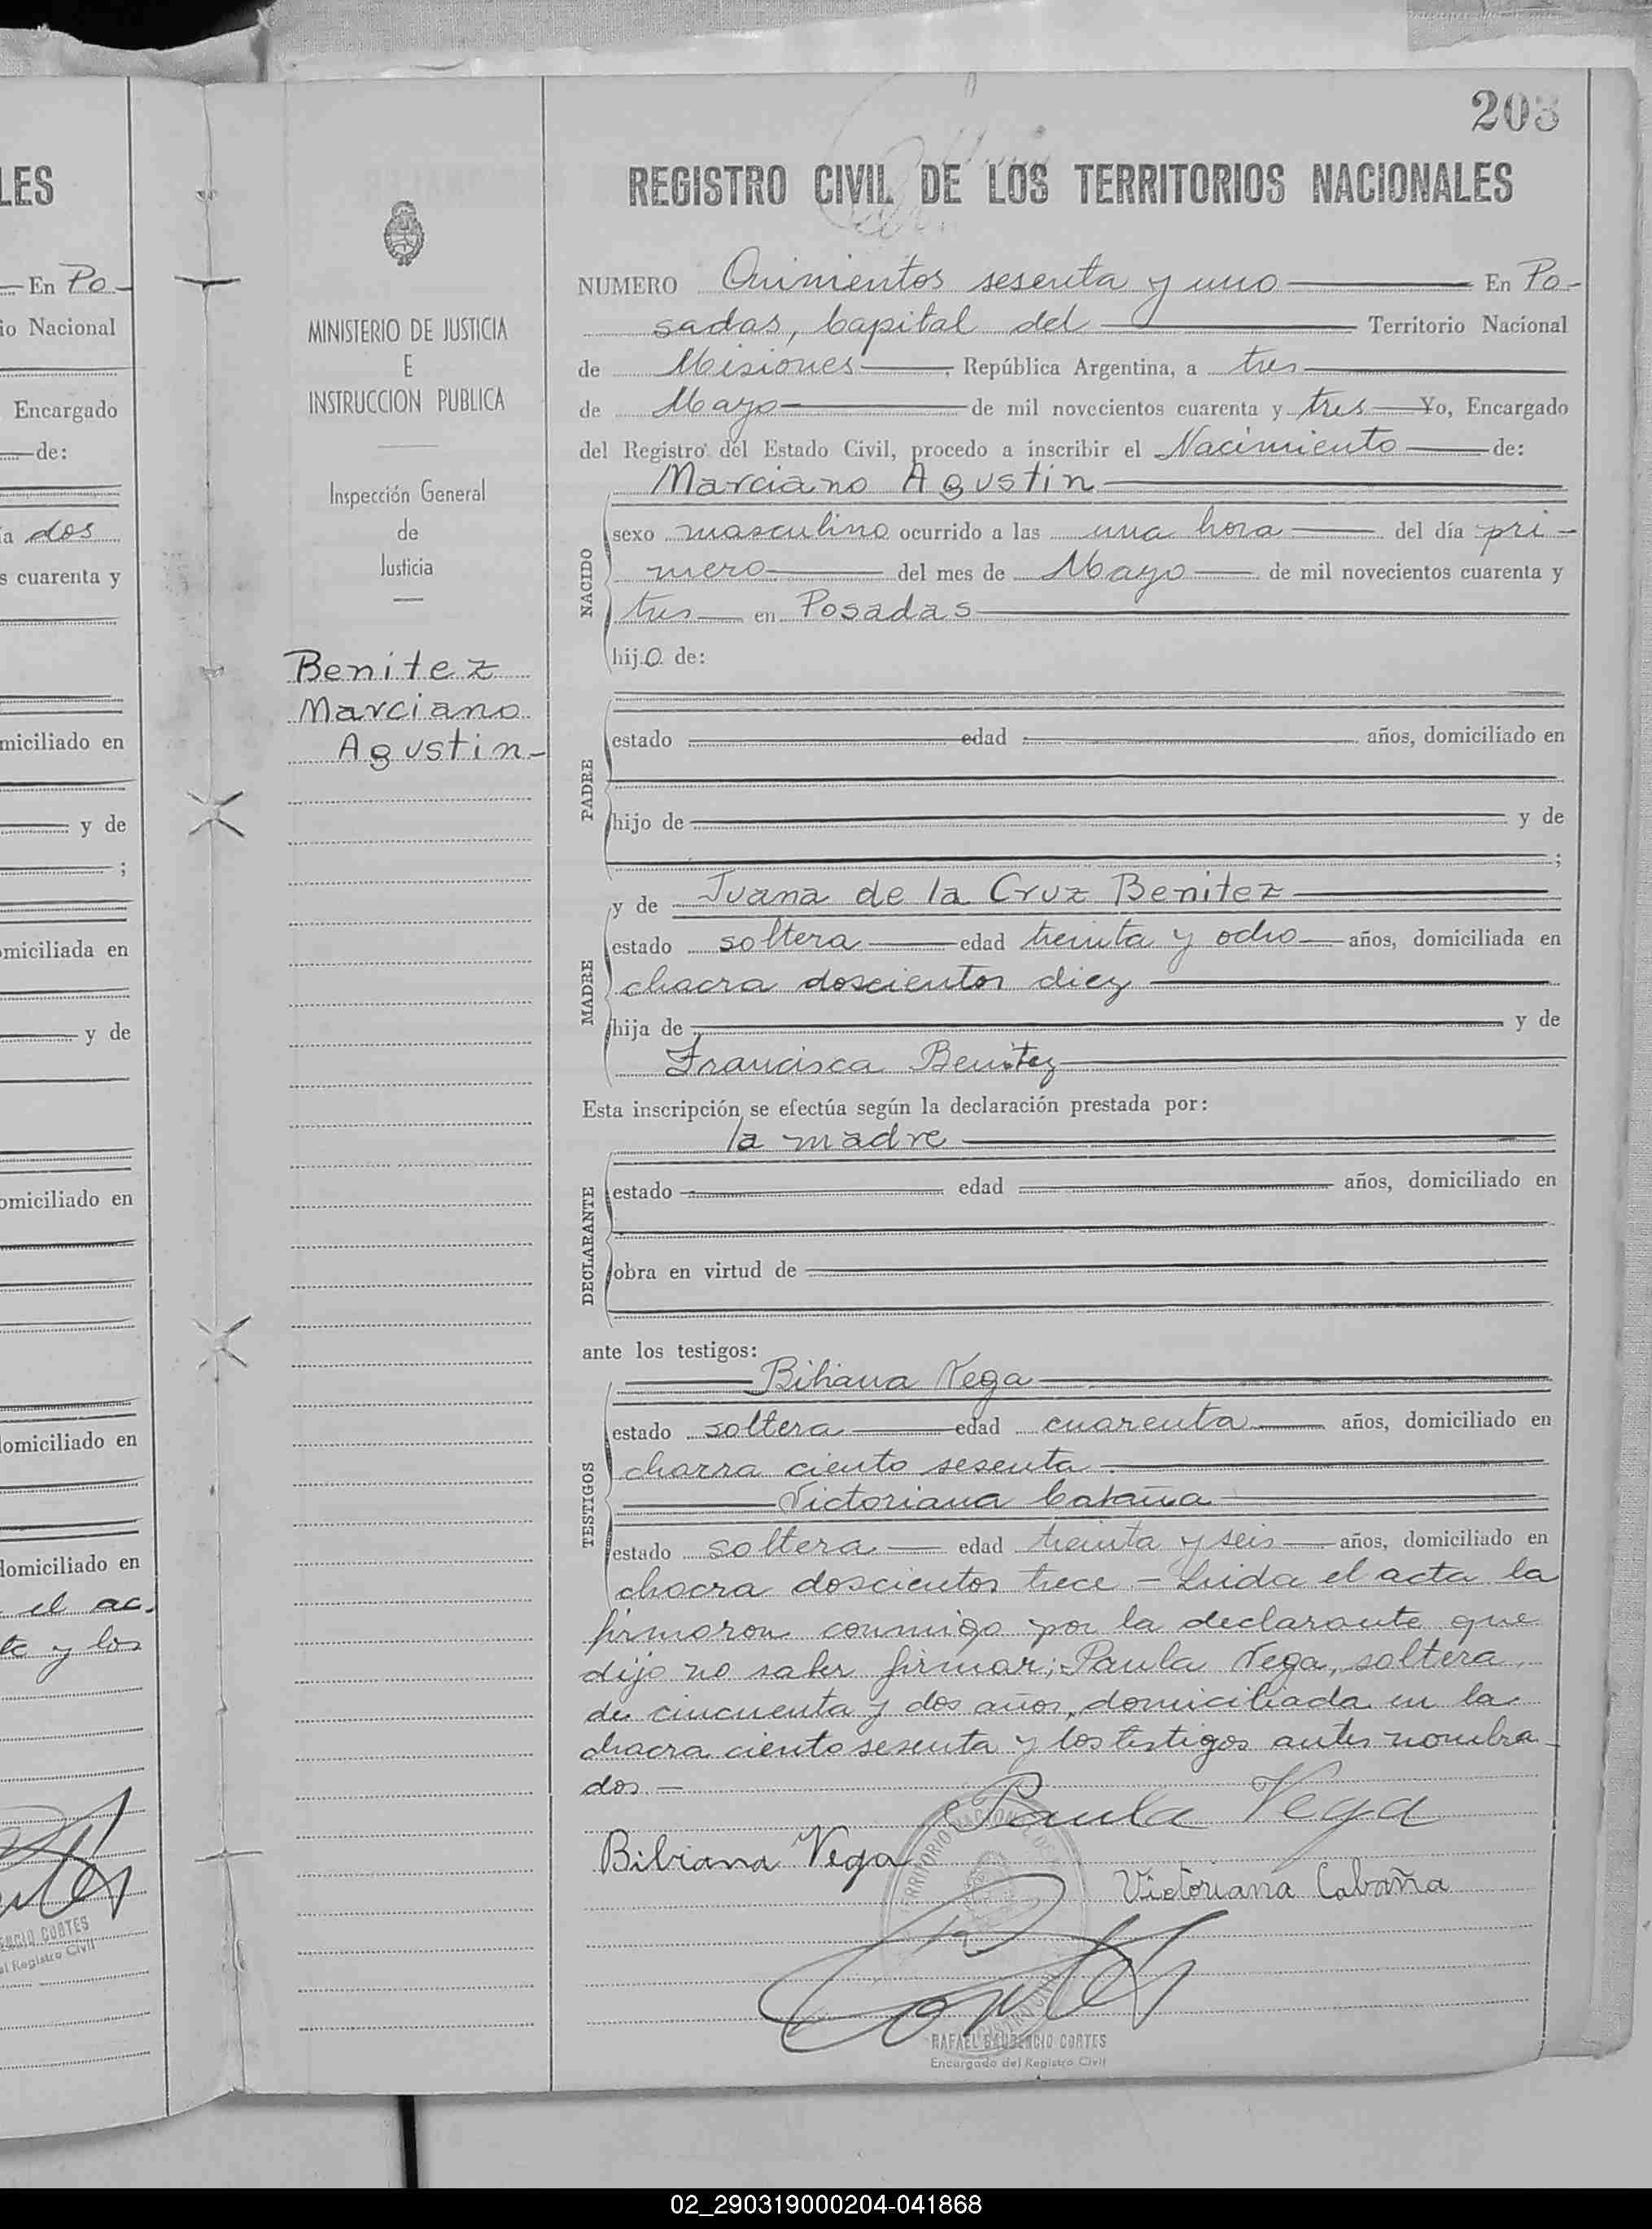 LES
En Po-
io Nacional
Encargado
de:
ia dos
s cuarenta y
miciliado en
y de
;
omiciliada en
y de
omiciliado en
domiciliado en
domiciliado en
el ac.
te y los
ENCIO CORTES
el Registro Civil
MINISTERIO DE JUSTICIA
E
INSTRUCCION PUBLICA
Inspección General
de
Justicia
Benitez
Marciano
Agustin-
203
REGISTRO CIVIL DE LOS TERRITORIOS NACIONALES
NUMERO Quinientos sesenta y uno En Po-
sadas, Capital del Territorio Nacional
de Misiones, República Argentina, a tres
de Mayo de mil novecientos cuarenta y tres Yo, Encargado
del Registro del Estado Civil, procedo a inscribir el Nacimiento de:
Marciano Agustin
NACIDO
sexo masculino ocurrido a las una hora del día pri-
mero del mes de Mayo de mil novecientos cuarenta y
tres en Posadas
hijo de:
PADRE
estado edad años, domiciliado en
hijo de y de
;
y de Juana de la Cruz Benitez
MADRE
estado soltera edad treinta y ocho años, domiciliada en
chacra doscientos diez
hija de y de
Francisca Benitez
Esta inscripción se efectúa según la declaración prestada por:
la madre
DECLARANTE
estado edad años, domiciliado en
obra en virtud de
ante los testigos:
Bibiana Vega
TESTIGOS
estado soltera edad cuarenta años, domiciliado en
chacra ciento sesenta
Victoriana Cabaña
estado soltera edad treinta y seis años, domiciliado en
chacra doscientos trece - Leida el acta la
firmaron conmigo por la declarante que
dijo no saber firmar; Paula Vega, soltera,
de cincuenta y dos años, domiciliada en la
chacra ciento sesenta y los testigos antes nombra-
dos.-
Paula Vega
Bibiana Vega
Victoriana Cabaña
Cortes
RAFAEL GAUDENCIO CORTES
Encargado del Registro Civil
02_290319000204-041868